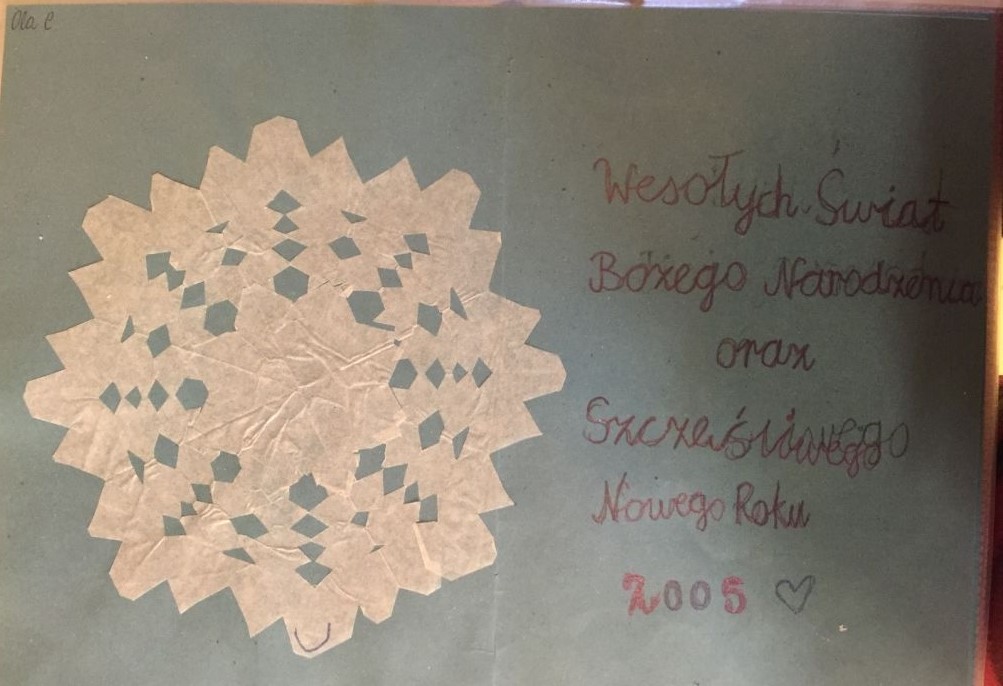 Ola C
Wesołych Świąt
Bożego Narodzenia
orax
Szczęśliwego
Nowego Roku
2005 ♡